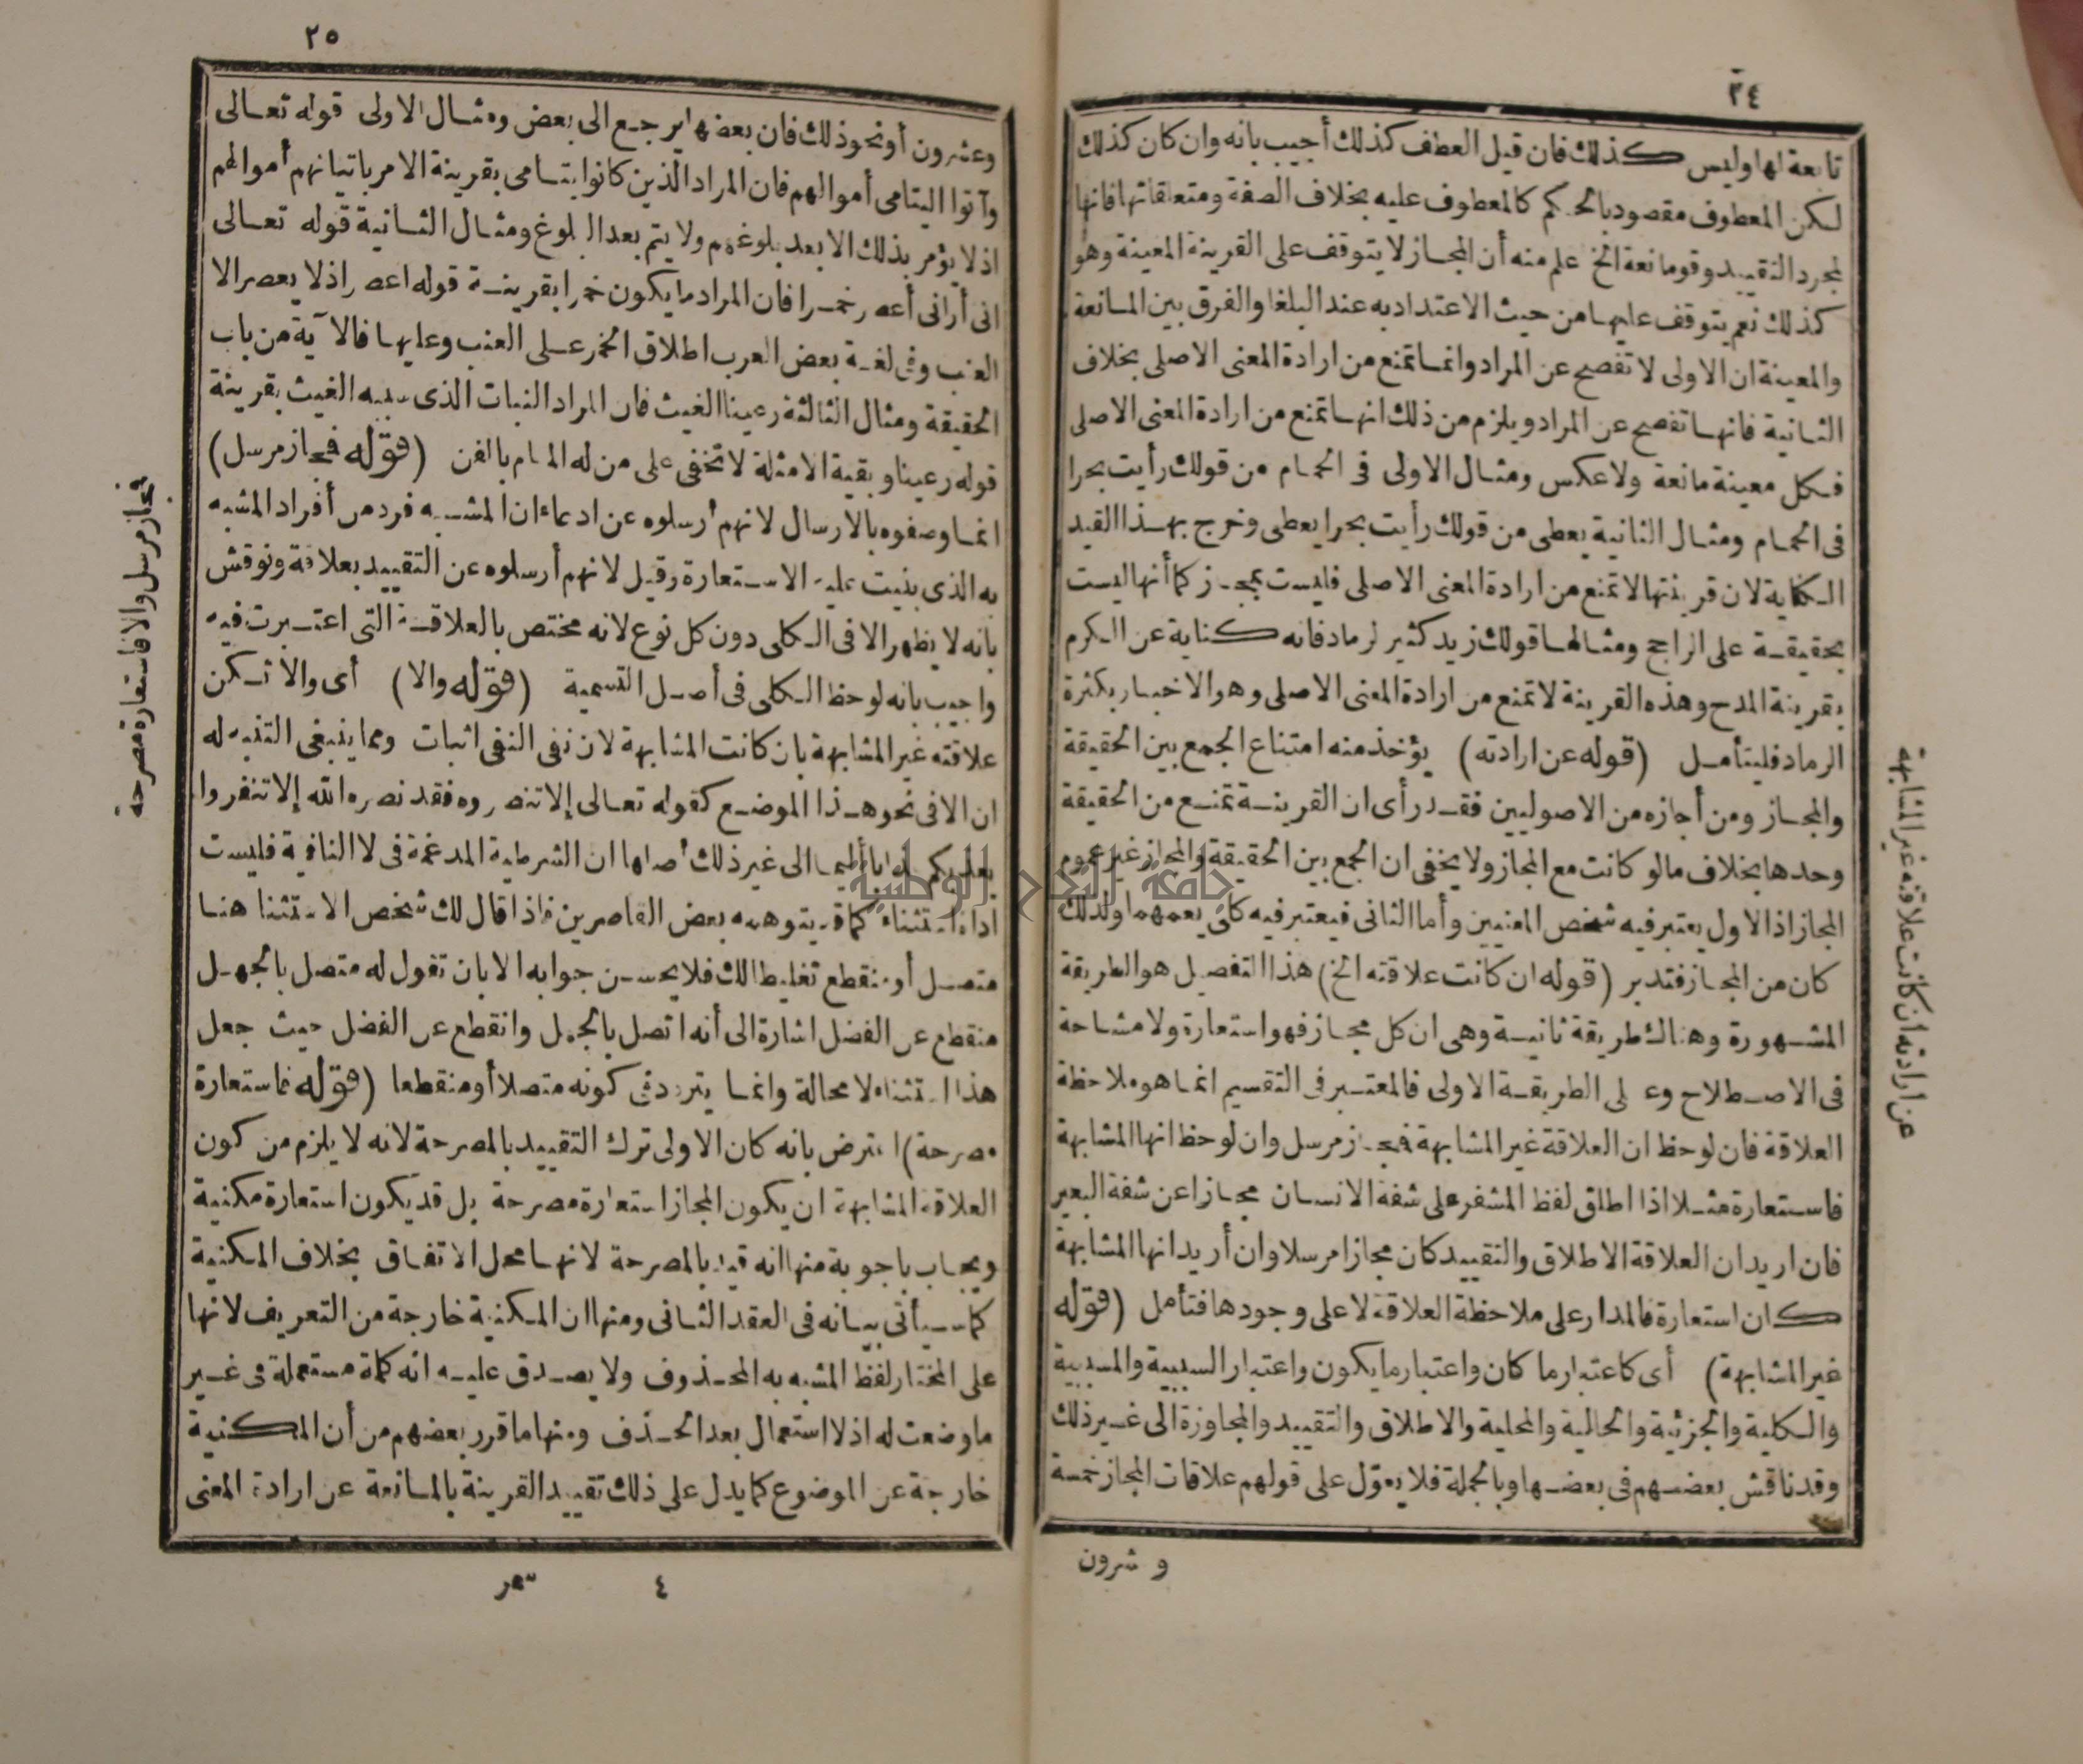 ٢٤
تابعة لها وليس كذلك فان قيل العطف كذلك أجيب بانه وان كان كذلك
لكن المعطوف مقصود بالحكم كالمعطوف عليه بخلاف الصفة ومتعلقاتها فانها
لمجرد التقييد وقو مانعة الخ علم منه أن المجاز لا يتوقف على القرينة المعينة وهو
كذلك نعم يتوقف عليها من حيث الاعتداد به عند البلغا والفرق بين المانعة
والمعينة ان الاولى لا تفصح عن المراد وانما تمنع من ارادة المعنى الاصلى بخلاف
الثانية فانها تفصح عن المراد ويلزم من ذلك انها تمنع من ارادة المعنى الاصلى
فكل معينة مانعة ولا عكس ومثال الاولى فى الحمام من قولك رأيت بحرا
فى الحمام ومثال الثانية يعطى من قولك رأيت بحرا يعطى وخرج بهذا القيد
الكناية لان قرينتها لا تمنع من ارادة المعنى الاصلى فليست بمجاز كما أنها ليست
بحقيقة على الراجح ومثالها قولك زيد كثير لرماد فانه كناية عن الكرم
بقرينة المدح وهذه القرينة لا تمنع من ارادة المعنى الاصلى وهو الاخبار بكثرة
الرماد فليتأمل (قوله عن ارادته) يؤخذ منه امتناع الجمع بين الحقيقة
والمجاز ومن أجازه من الاصوليين فقد رأى ان القرينة تمنع من الحقيقة
وحدها بخلاف ما لو كانت مع المجاز ولا يخفى ان الجمع بين الحقيقة والمجاز غير عموم
المجاز اذ الاول يعتبر فيه شخص المعنيين وأما الثانى فيعتبر فيه كلى يعمهما ولذلك
كان من المجاز فتدبر (قوله ان كانت علاقته الخ) هذا التفصيل هو الطريقة
المشهورة وهناك طريقة ثانية وهى ان كل مجاز فهو استعارة ولا مشاحة
فى الاصطلاح وعلى الطريقة الاولى فالمعتبر فى التقسيم انما هو ملاحظة
العلاقة فان لوحظ ان العلاقة غير المشابهة فمجاز مرسل وان لوحظ انها المشابهة
فاستعارة مثلا اذا اطلق لفظ المشفر على شفة الانسان مجازا عن شفة البعير
فان اريد ان العلاقة الاطلاق والتقييد كان مجازا مرسلا وان أريد انها المشابهة
كان استعارة فالمدار على ملاحظة العلاقة لا على وجودها فتأمل (قوله
غير المشابهة) أى كاعتبار ما كان واعتبار ما يكون واعتبار السببية والمسببية
والكلية والجزئية والحالية والمحلية والاطلاق والتقييد والمجاوزة الى غير ذلك
وقد ناقش بعضهم فى بعضها وبالجملة فلا يعوّل على قولهم علاقات المجاز خمسة
وعشرون
عن ارادته ان كانت علاقته غير المشابهة
٢٥
وعشرون أو نحو ذلك فان بعضها يرجع الى بعض ومثال الاولى قوله تعالى
وآتوا اليتامى أموالهم فان المراد الذين كانوا يتامى بقرينة الامر باتيانهم أموالهم
اذ لا يؤمر بذلك الا بعد بلوغهم ولا يتم بعد البلوغ ومثال الثانية قوله تعالى
انى أرانى أعصر خمرا فان المراد ما يكون خمرا بقرينة قوله اعصر اذ لا يعصر الا
العنب وفى لغة بعض العرب اطلاق الخمر على العنب وعليها فالآية من باب
الحقيقة ومثال الثالثة رعينا الغيث فان المراد النبات الذى سببه الغيث بقرينة
قوله رعينا وبقية الامثلة لا تخفى على من له المام بالفن (قوله فمجاز مرسل)
انما وصفوه بالارسال لانهم أرسلوه عن ادعاء ان المشبه فرد من أفراد المشبه
به الذى بنيت عليه الاستعارة وقيل لانهم أرسلوه عن التقييد بعلاقة ونوقش
بانه لا يظهر الا فى الكلى دون كل نوع لانه مختص بالعلاقة التى اعتبرت فيه
واجيب بانه لوحظ الكلى فى أصل التسمية (قوله والا) أى والا تكن
علاقته غير المشابهة بان كانت المشابهة لان نفى النفى اثبات ومما ينبغى التنبه له
ان الا فى نحو هذا الموضع كقوله تعالى إلا تنصروه فقد نصره الله إلا تنفروا
يعذبكم عذابا أليما الى غير ذلك أصلها ان الشرطية المدغمة فى لا النافية فليست
اداة استثناء كما قد يتوهمه بعض القاصرين فاذا قال لك شخص الاستثنا هنا
متصل أو منقطع تغليطا لك فلا يحسن جوابه الا بان تقول له متصل بالجهل
منقطع عن الفضل اشارة الى أنه اتصل بالجهل وانقطع عن الفضل حيث جعل
هذا استثناء لا محالة وانما يتردد فى كونه متصلا أو منقطعا (قوله فاستعارة
مصرحة) اعترض بانه كان الاولى ترك التقييد بالمصرحة لانه لا يلزم من كون
العلاقة المشابهة ان يكون المجاز استعارة مصرحة بل قد يكون استعارة مكنية
ويجاب باجوبة منها انه قيد بالمصرحة لانها محل الاتفاق بخلاف المكنية
كما سيأتى بيانه فى العقد الثانى ومنها ان المكنية خارجة من التعريف لانها
على المختار لفظ المشبه به المحذوف ولا يصدق عليه انه كلمة مستعملة فى غير
ما وضعت له اذ لا استعمال بعد الحذف ومنها ما قرر بعضهم من أن المكنية
خارجة عن الموضوع كما يدل على ذلك تقييد القرينة بالمانعة عن ارادة المعنى
٤ سمر
فمجاز مرسل والا فاستعارة مصرحة
جامعة النجاح الوطنية